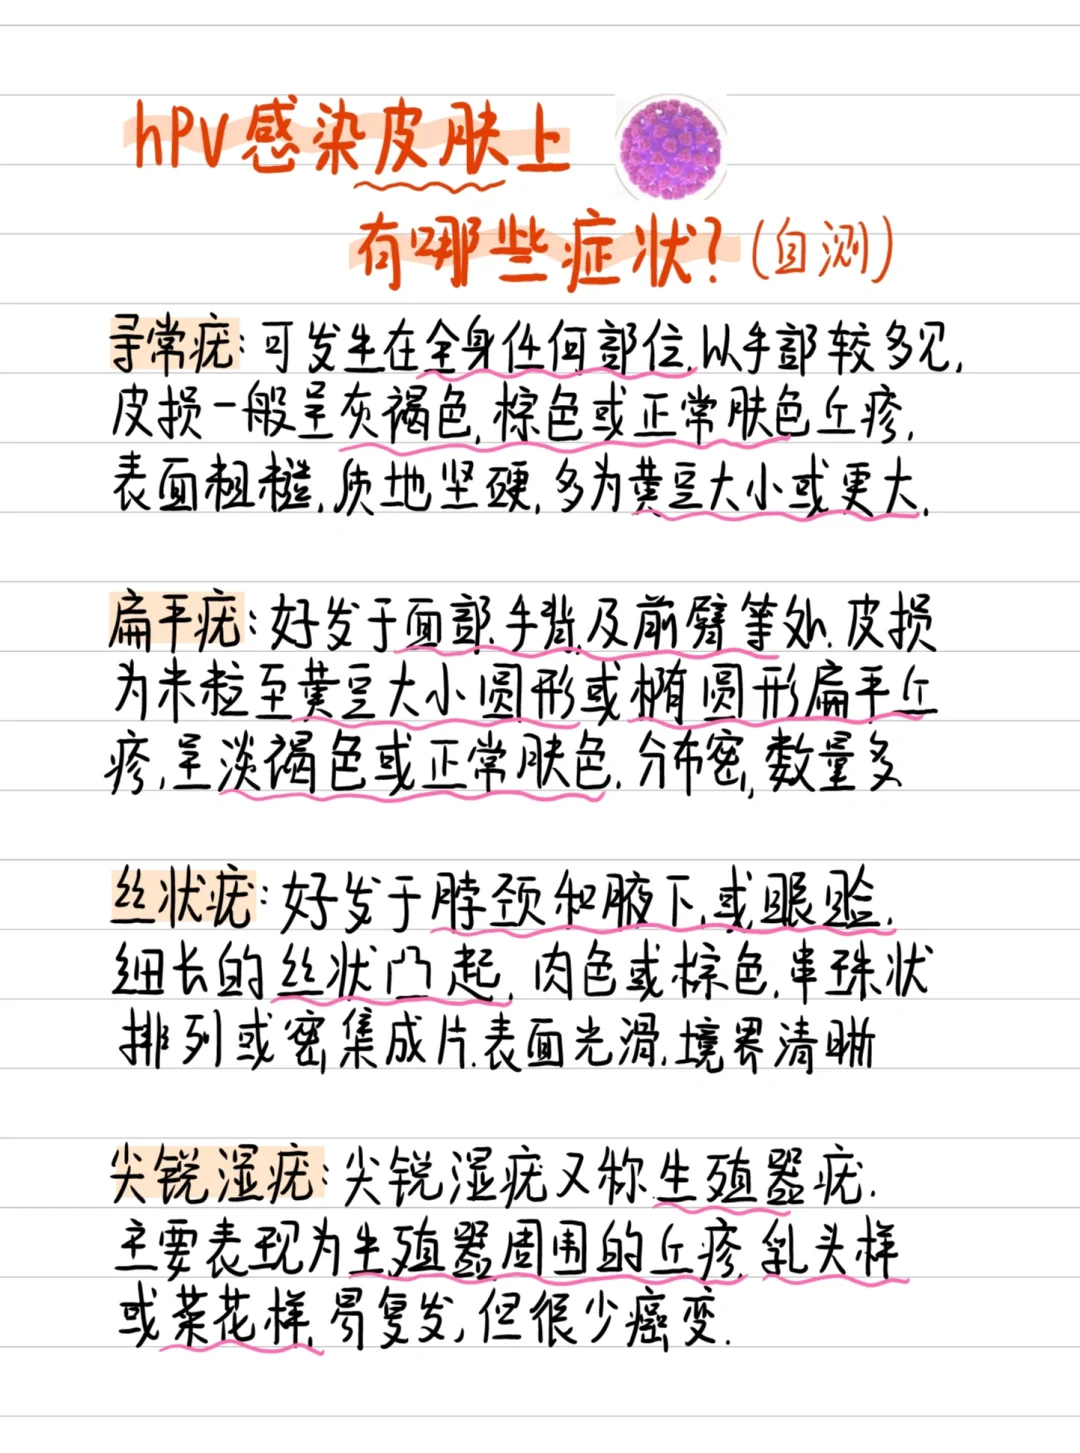 hPV感染皮肤上
有哪些症状?(自测)
寻常疣:可发生在全身任何部位,以手部较多见,
皮损一般呈灰褐色,棕色或正常肤色丘疹,
表面粗糙,质地坚硬,多为黄豆大小或更大,
扁平疣:好发于面部,手背,及前臂等处,皮损
为米粒至黄豆大小圆形或椭圆形扁平丘
疹,呈淡褐色或正常肤色,分布密,数量多
丝状疣:好发于脖颈和腋下,或眼睑,
细长的丝状凸起,肉色或棕色,串珠状
排列或密集成片,表面光滑,境界清晰
尖锐湿疣:尖锐湿疣又称生殖器疣.
主要表现为生殖器周围的丘疹,乳头样
或菜花样,易复发,但很少癌变.